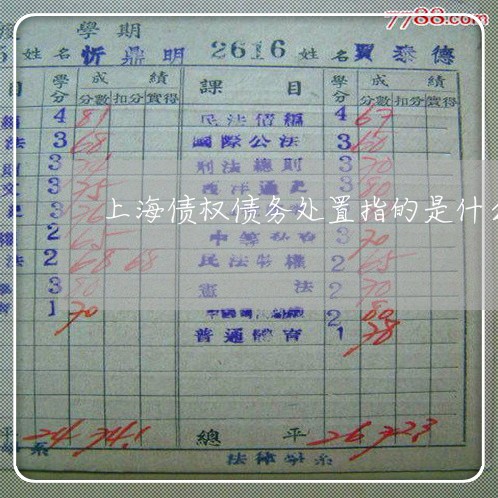 7788.com
學期
姓名 忻鼎明 2616 姓名 賈泰德
目 學分 成績 課目 學分 成績
分數 扣分 實得 分數 扣分 實得
4 81 民法債編 4 67
法 3 68 國際公法 3 60
3 刑法總則 3 70
3 75 西洋通史 3 80
上海债权债务处置指的是什么
2 65 3 70
法 2 68 68 民法物權 2 65
3 80 憲法 2 70
1 70 2 80
普通體育 1 78
平 24 74.1 總平 26 72.3
系 法律學系